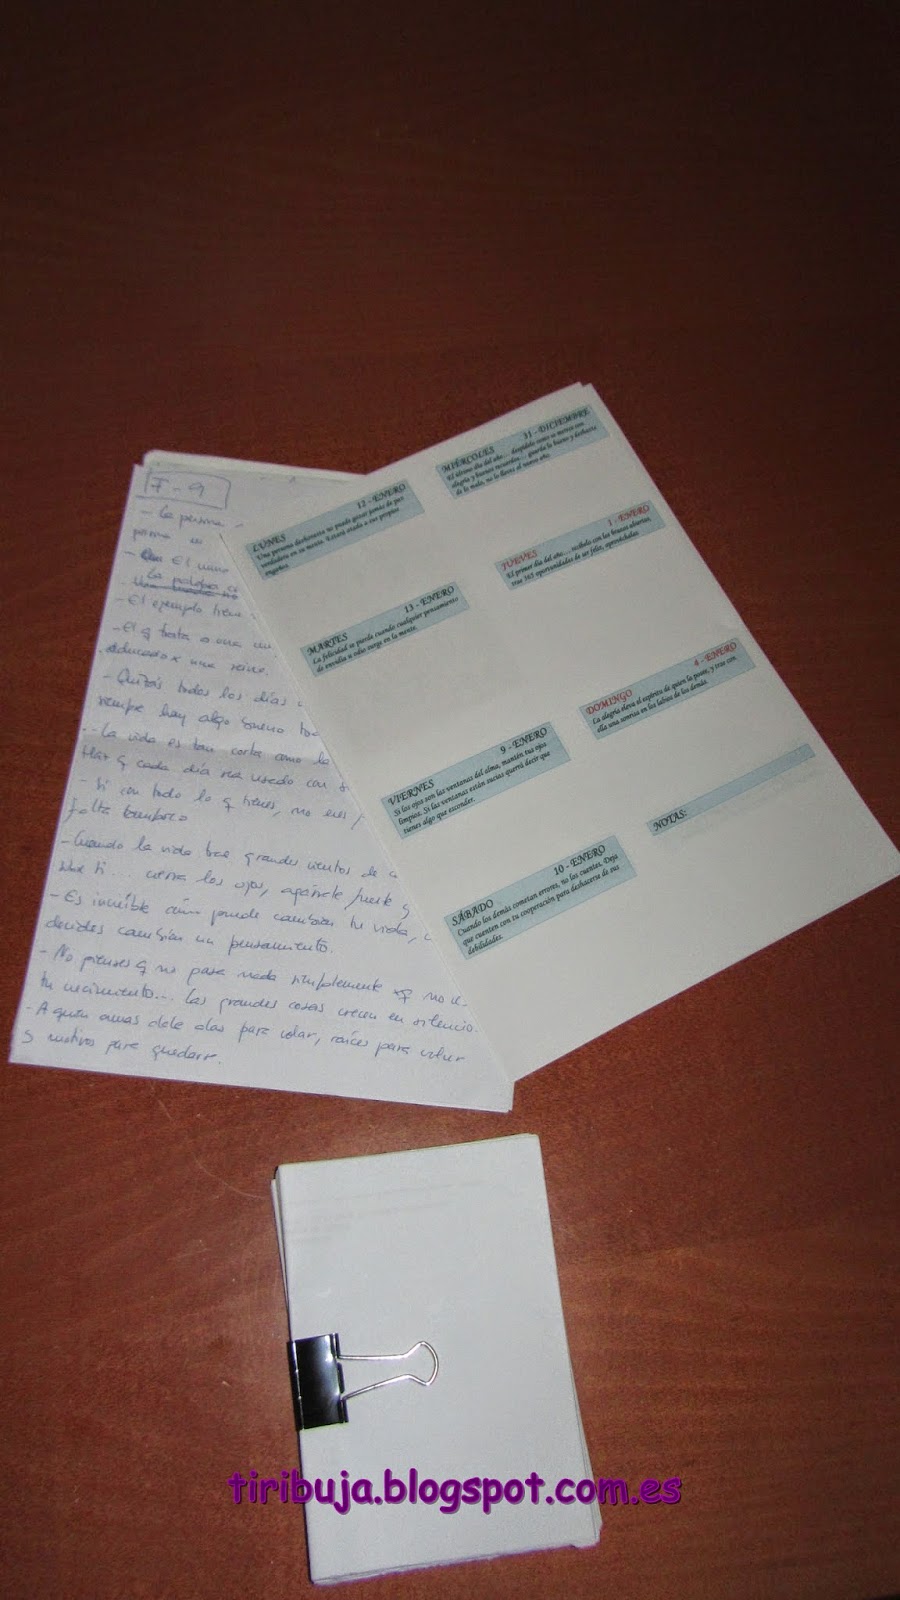 F-9
- La persona
- El mono
La palabra
- El ejemplo tiene
- El q trata a una
educado x una reina.
- Quizás todos los días
siempre hay algo bueno
- La vida es tan corta como la
Haz q cada día sea usado con
- Si con todo lo q tienes, no eres
falta tampoco
- Cuando la vida trae grandes vientos de
ti... cierra los ojos, agárrate fuerte y
- Es increíble cómo puede cambiar tu vida,
decides cambiar un pensamiento.
- No pienses q no pasa nada simplemente xq no
tu crecimiento... Las grandes cosas crecen en silencio.
- A quien amas dale alas para volar, raíces para volver
y motivos para quedarse.
LUNES 12 - ENERO
Una persona deshonesta no puede gozar jamás de paz
verdadera en su mente. Estará atada a sus propios
engaños.
MARTES 13 - ENERO
La felicidad se pierde cuando cualquier pensamiento
de envidia u odio surge en la mente.
VIERNES 9 - ENERO
Si los ojos son las ventanas del alma, mantén tus ojos
limpios. Si las ventanas están sucias querrá decir que
tienes algo que esconder.
SÁBADO 10 - ENERO
Cuando los demás cometan errores, no los cuentes. Deja
que cuenten con tu cooperación para deshacerse de sus
debilidades.
MIÉRCOLES 31 - DICIEMBRE
El último día del año... despídelo como se merece con
alegría y buenos recuerdos... guarda lo bueno y deshazte
de lo malo, no lo lleves al nuevo año.
JUEVES 1 - ENERO
El primer día del año... recíbelo con los brazos abiertos,
trae 365 oportunidades de ser feliz, aprovéchalas
DOMINGO 4 - ENERO
La alegría eleva el espíritu de quien la posee, y trae con
ella una sonrisa en los labios de los demás.
NOTAS:
tiribuja.blogspot.com.es